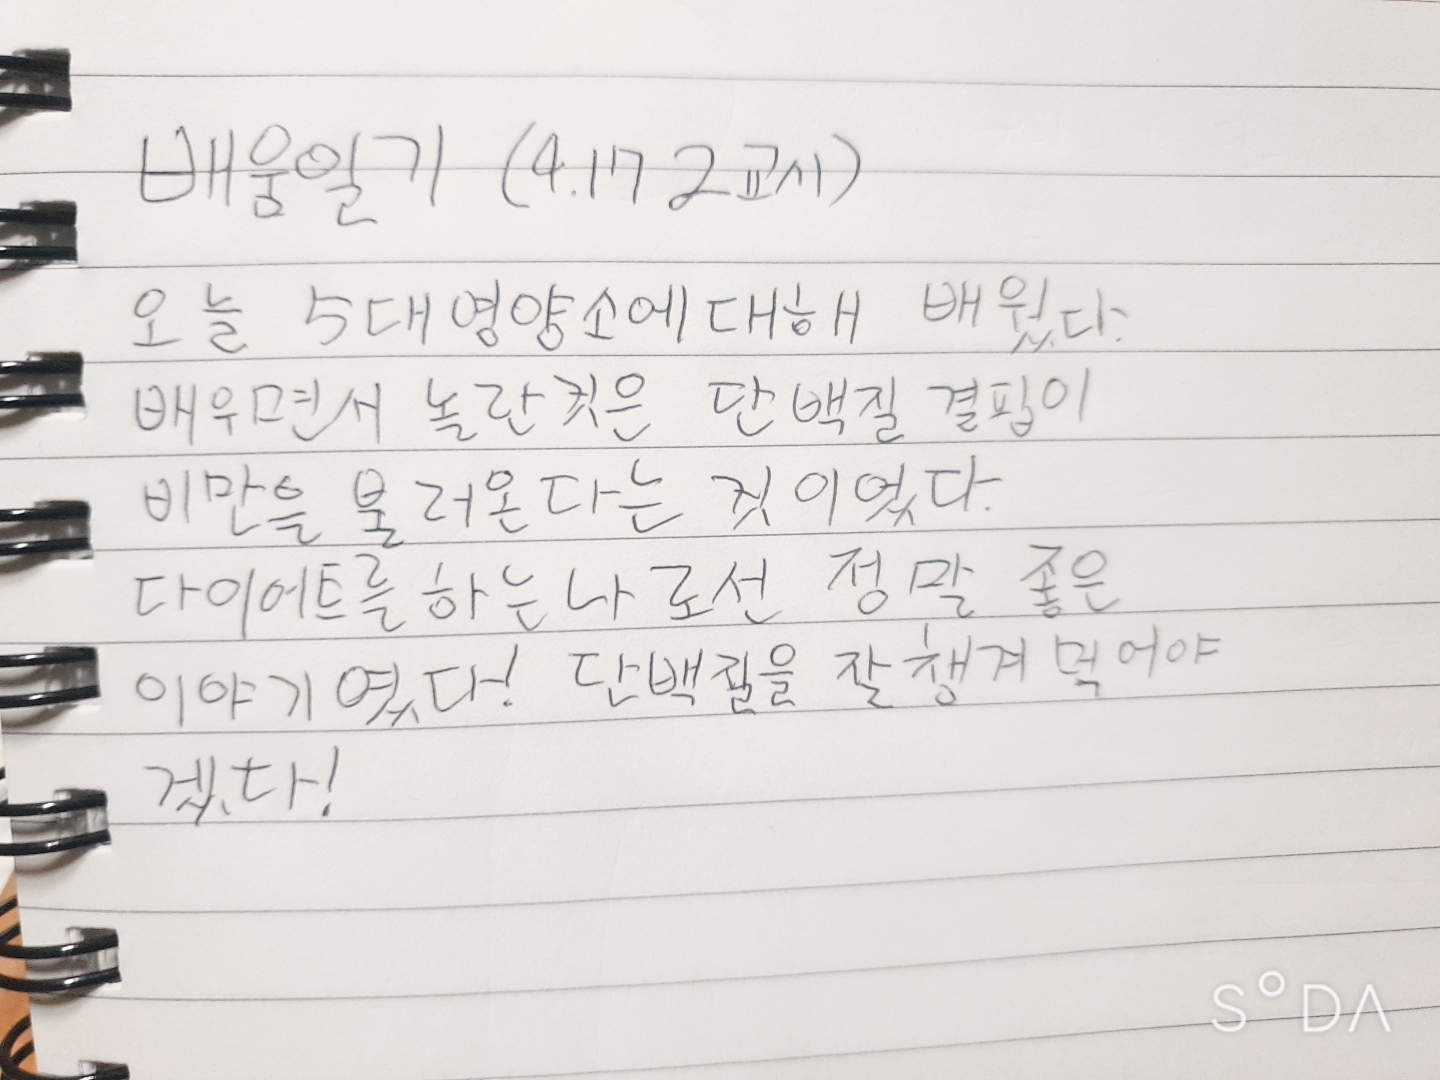 배움일기 (4.17 2교시)
오늘 5대영양소에 대해 배웠다.
배우면서 놀란것은 단백질 결핍이
비만을 불러온다는 것이였다.
다이어트를 하는 나로선 정말 좋은
이야기였다! 단백질을 잘 챙겨 먹어야
겠다!
SODA